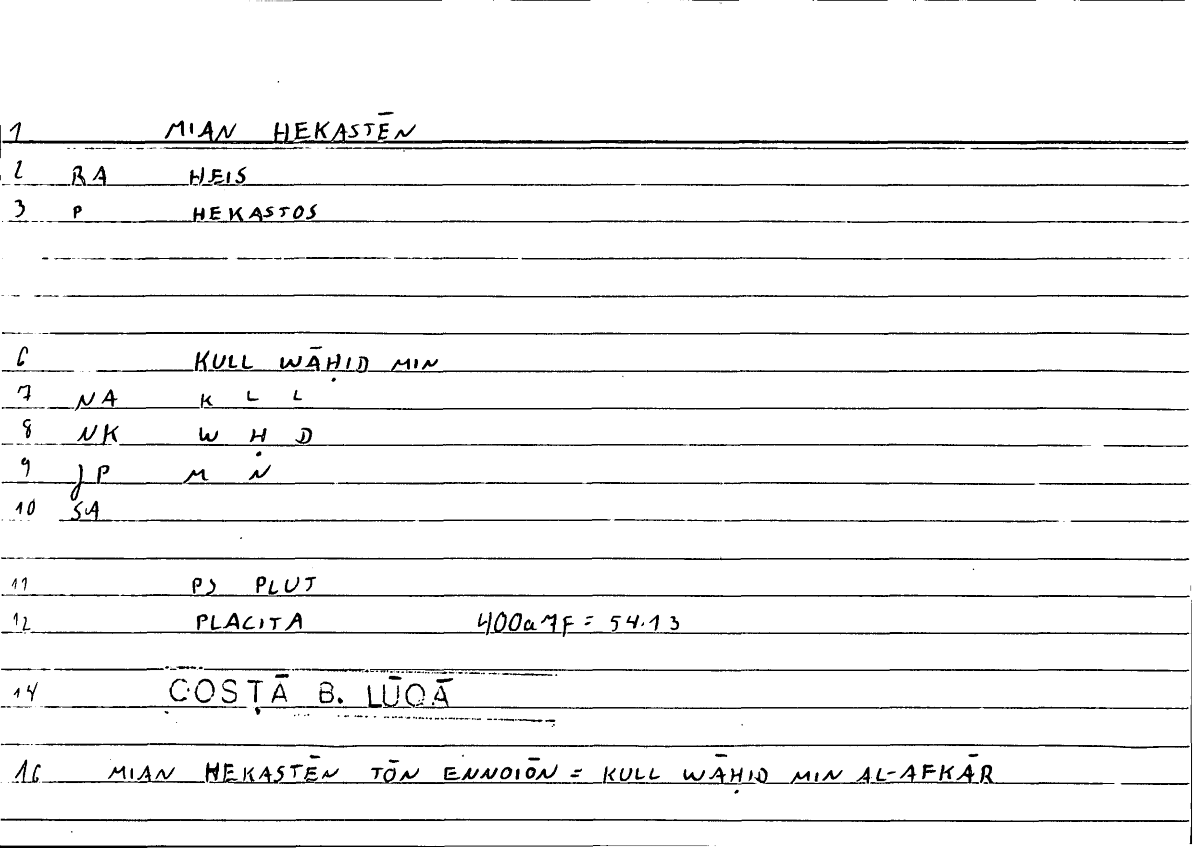 1 MIAN HEKASTĒN
2 RA HEIS
3 P HEKASTOS
6 KULL WĀḤID MIN
7 NA K L L
8 NK W Ḥ D
9 JP M N
10 SA
11 PS PLUT
12 PLACITA 400a7F = 54.13
14 COSṬĀ B. LŪQĀ
16 MIAN HEKASTĒN TŌN ENNOIŌN = KULL WĀḤID MIN AL-AFKĀR